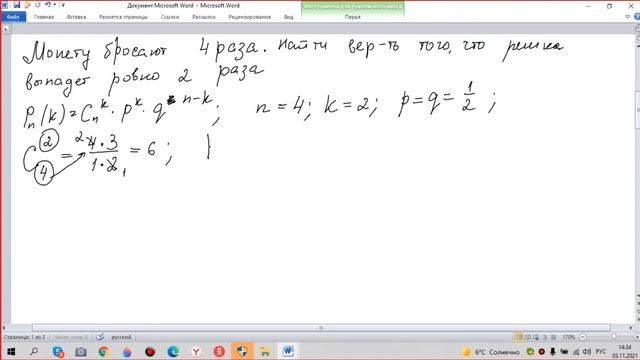 Документ Microsoft Word - Microsoft Word
Инструменты для рукописного ввода
Файл Главная Вставка Разметка страницы Ссылки Рассылки Рецензирование Вид Надстройки Перья
Монету бросают 4 раза. Найти вер-ть того, что решка
выпадет ровно 2 раза
Pₙ(k) = Cₙᵏ · pᵏ · qⁿ⁻ᵏ ; n = 4; k = 2; p = q = 1/2 ;
C₄² = 4·3 / 1·2 = 6 ;
Страница: 1 из 2 Число слов: 0 русский 170%
6°C Солнечно РУС 14:34
03.11.2021